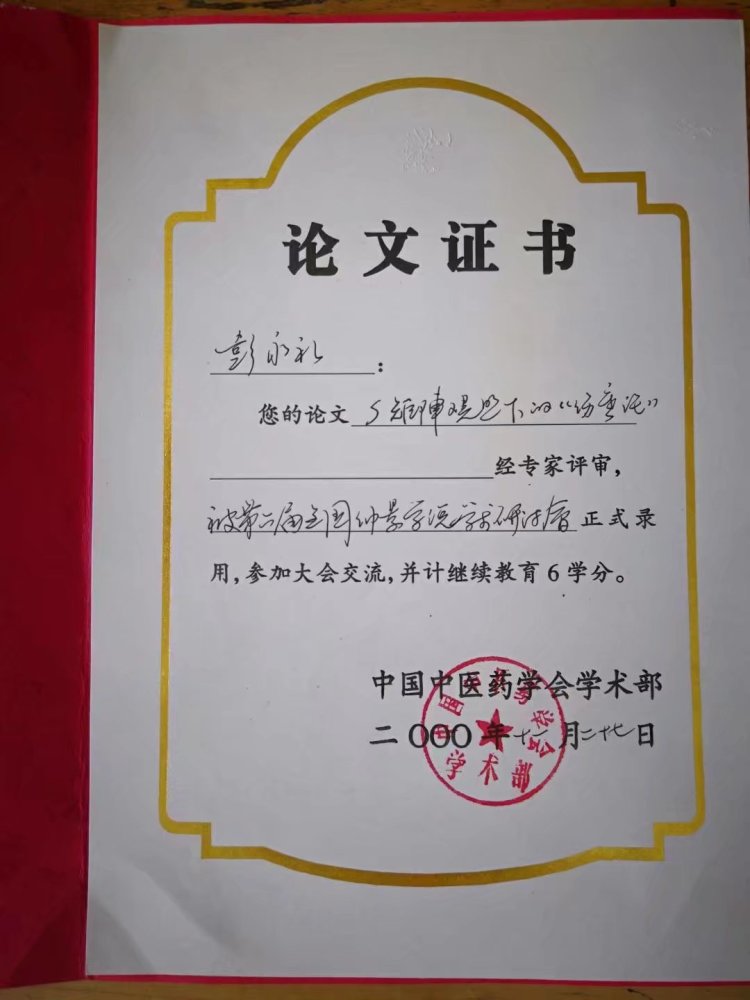 论文证书
彭永礼：
您的论文 矩阵观点下的“伤寒论”
经专家评审，
被第六届全国仲景学说学术研讨會 正式录
用，参加大会交流，并计继续教育 6 学分。
中国中医药学会学术部
二〇〇〇年十一月二十七日
中国中医药学会
学术部